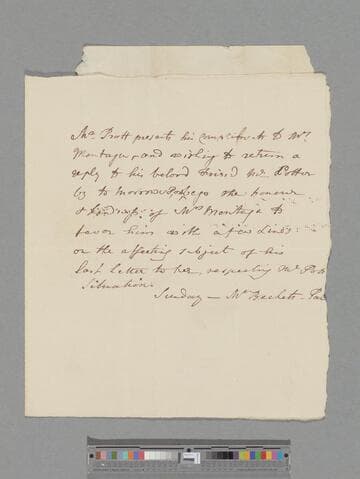 Mr. Pratt presents his compliments to Mrs.
Montagu, and wishing to return a
reply to his belov'd Friend Mr. Potter
by to morrow's begs the honour
& kindness of Mrs. Montagu to
favor him with a few Lines
on the affecting subject of his
last letter to her, respecting Mr. Pott
Situation.
Sunday — Mr. Beckets. Pa